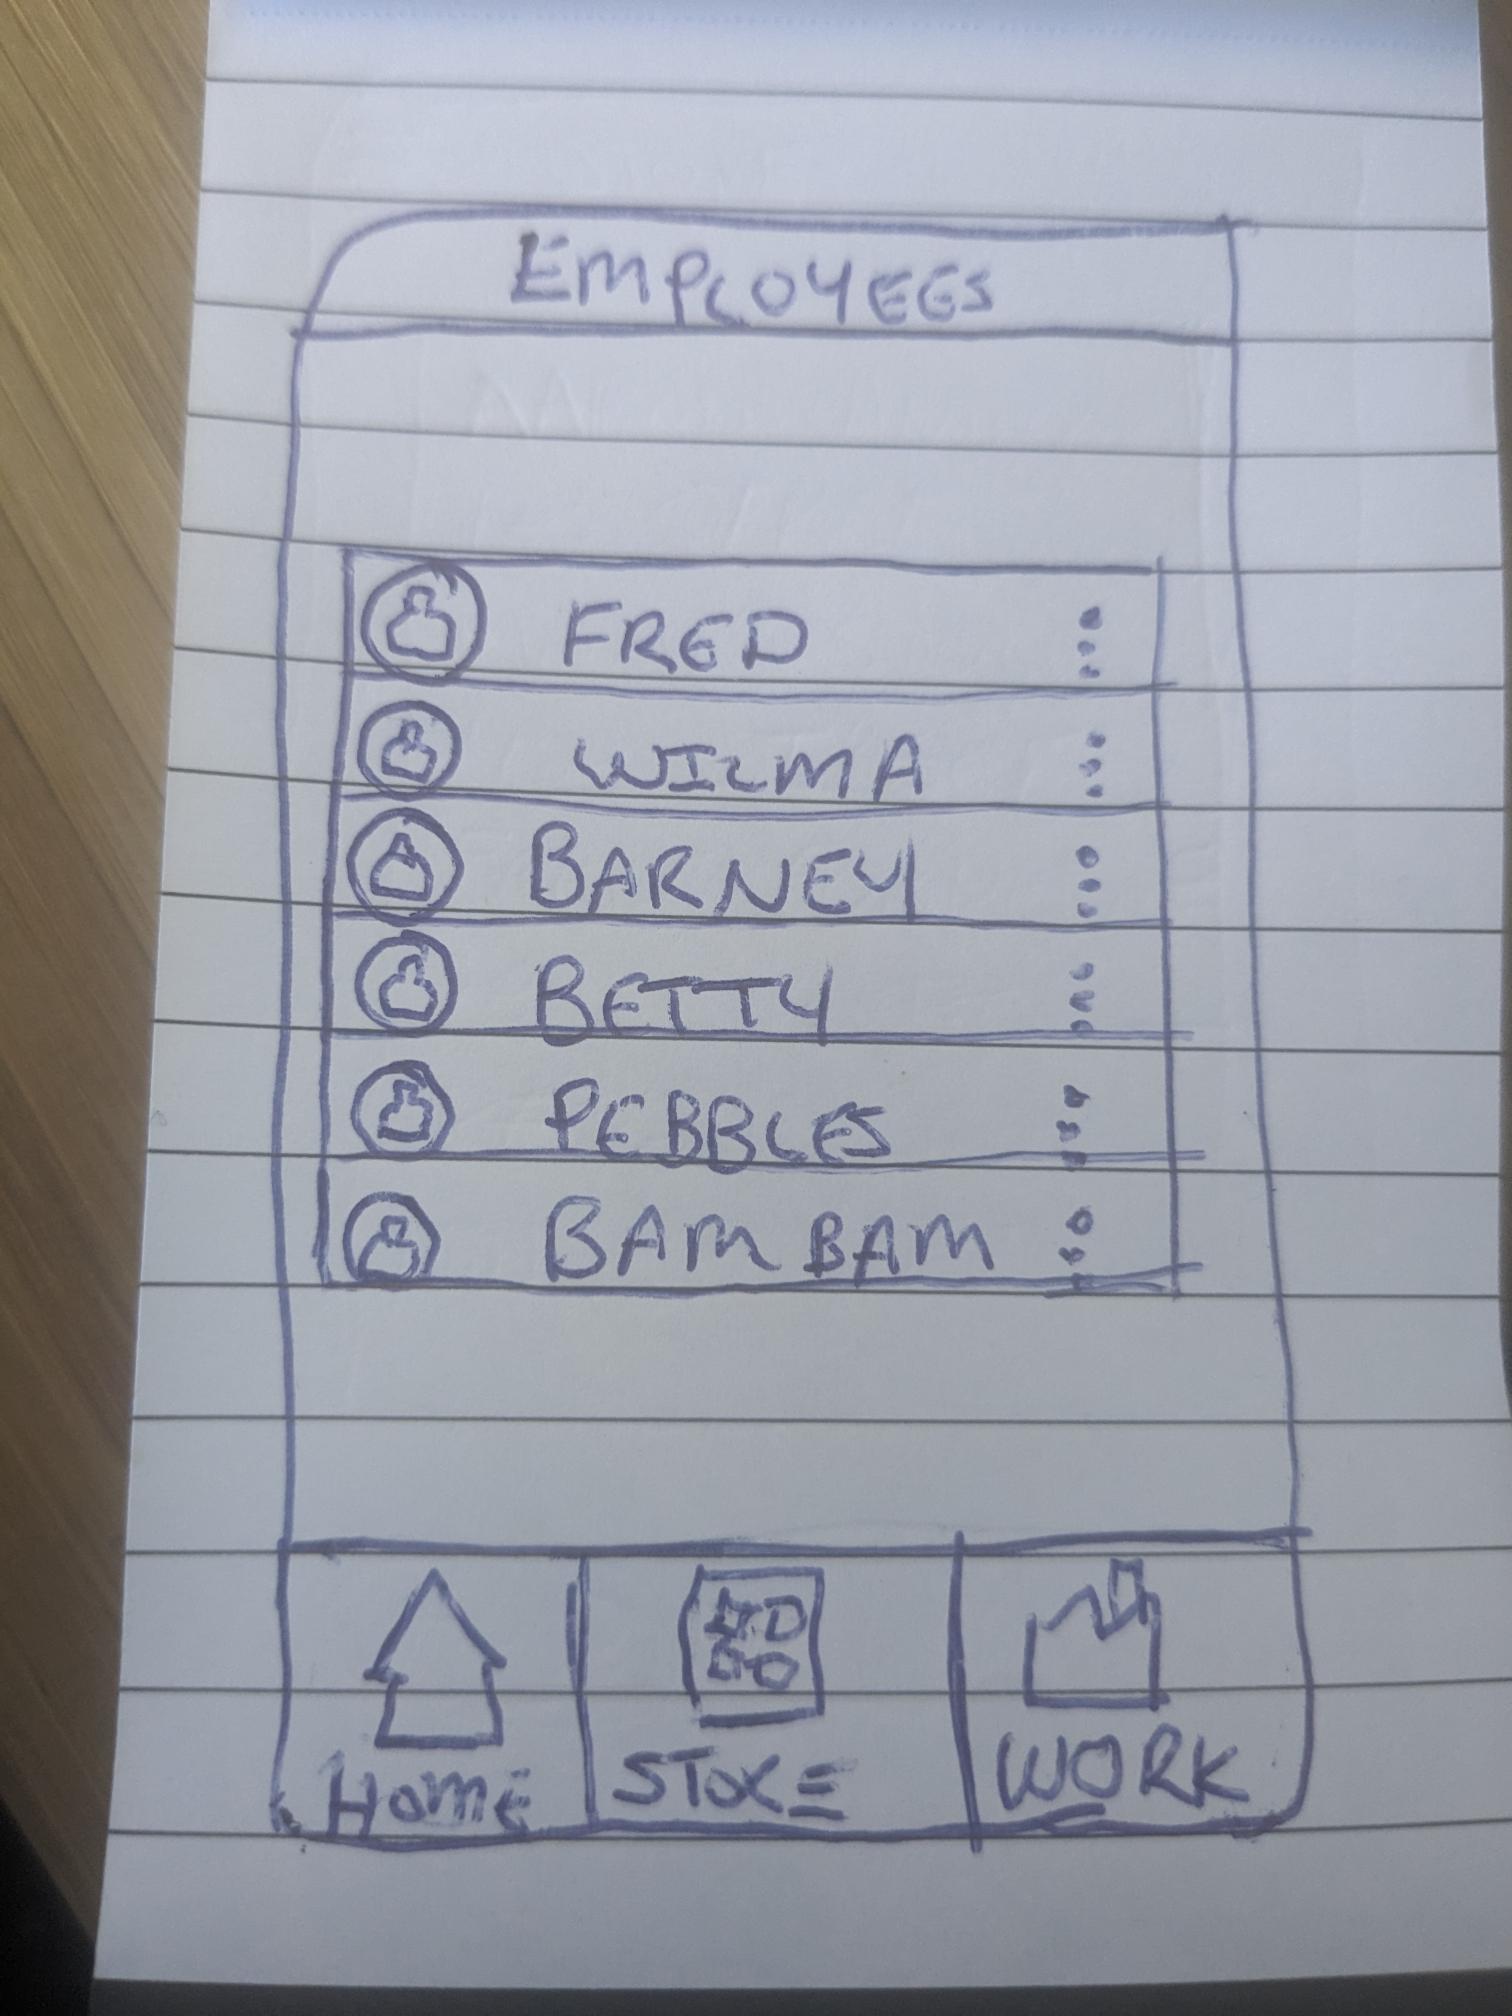 EMPLOYEES
FRED
WILMA
BARNEY
BETTY
PEBBLES
BAM BAM
HOME
STORE
WORK